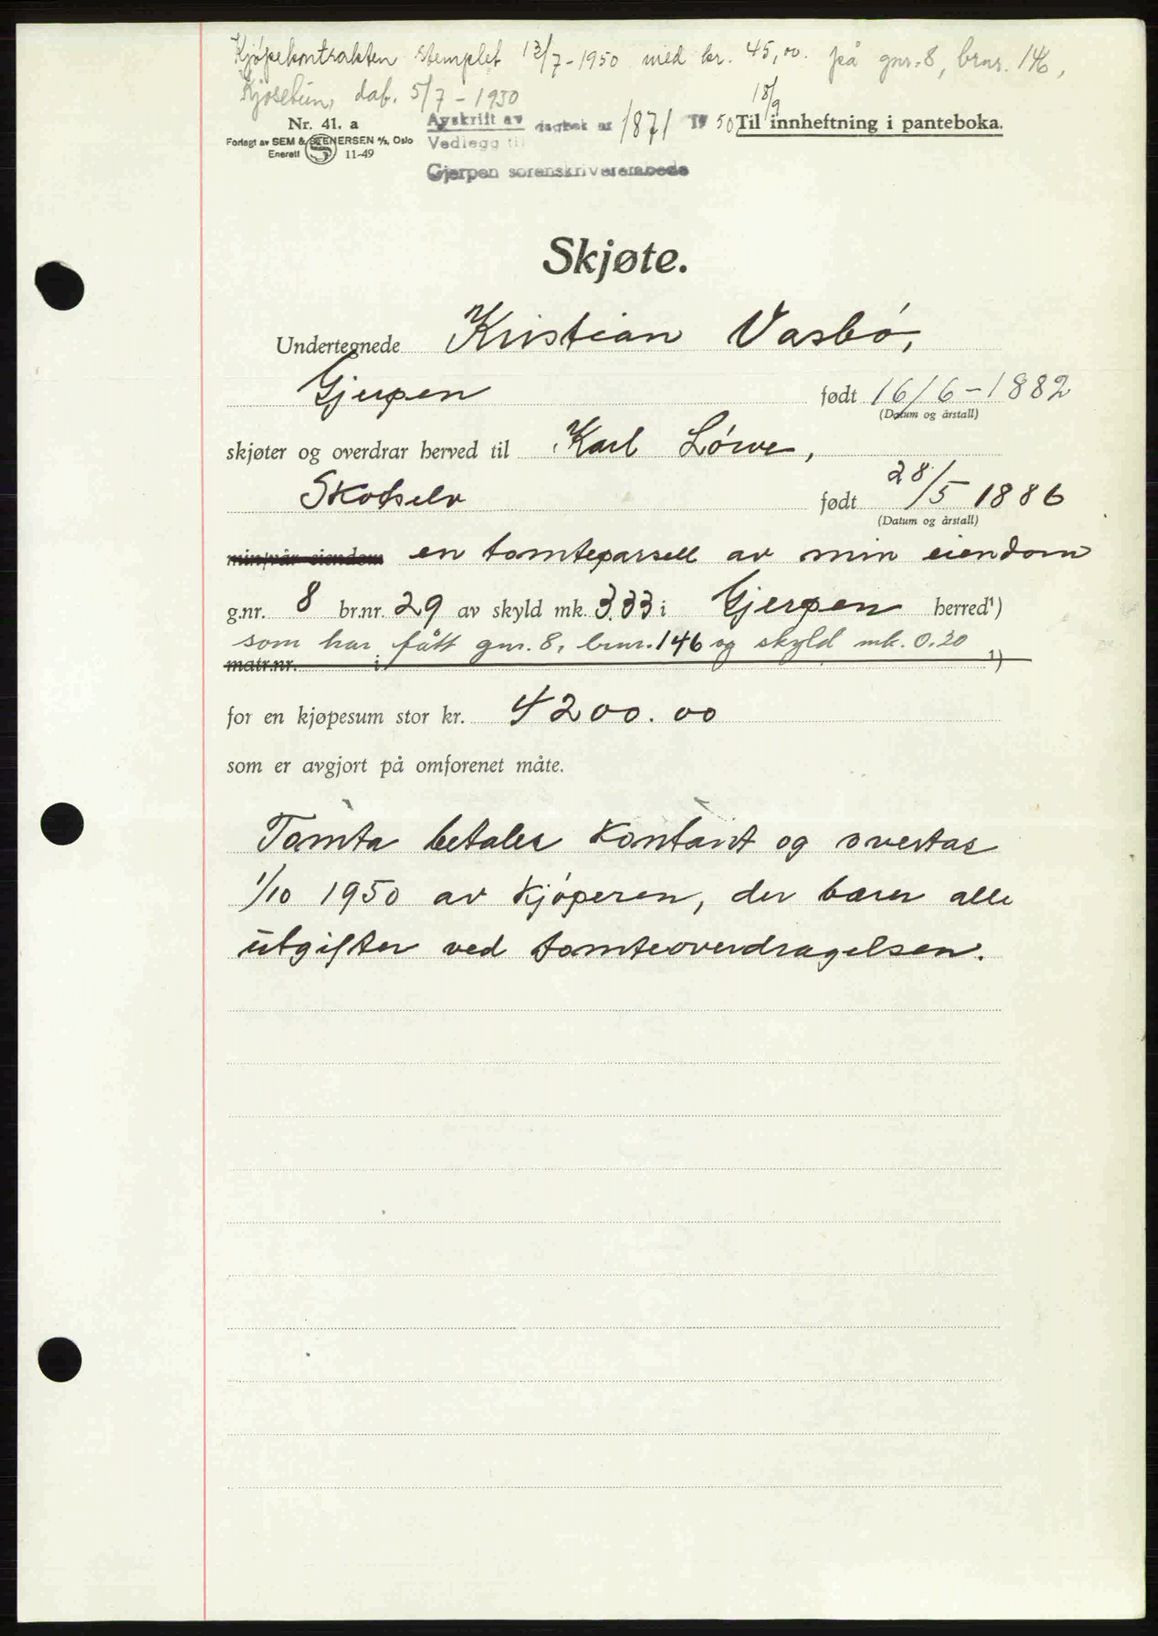 Kjøpekontrakten stemplet 13/7-1950 med kr. 45,00. på gnr. 8, brnr. 146,
dat. 5/7-1950
Nr. 41. a
Forlagt av SEM & STENERSEN A/S, Oslo
Enerett 11-49
Avskrift av dagbok nr 1871 19 50 18/9 Til innheftning i panteboka.
Vedlegg til
Gjerpen sorenskriverembede
Skjøte.
Undertegnede Kristian Vasbø,
Gjerpen født 16/6-1882
(Datum og årstall)
skjøter og overdrar herved til Karl Løwe,
Skotselv født 28/5 1886
(Datum og årstall)
min/vår eiendom en tomteparsell av min eiendom
g.nr. 8 br.nr. 29 av skyld mk. 3.33 i Gjerpen herred¹)
som har fått gnr. 8, brnr. 146 og skyld mk. 0.20
matr.nr. i ¹)
for en kjøpesum stor kr. 4200.00
som er avgjort på omforenet måte.
Tomta betales kontant og overtas
1/10 1950 av kjøperen, der bærer alle
utgifter ved tomteoverdragelsen.